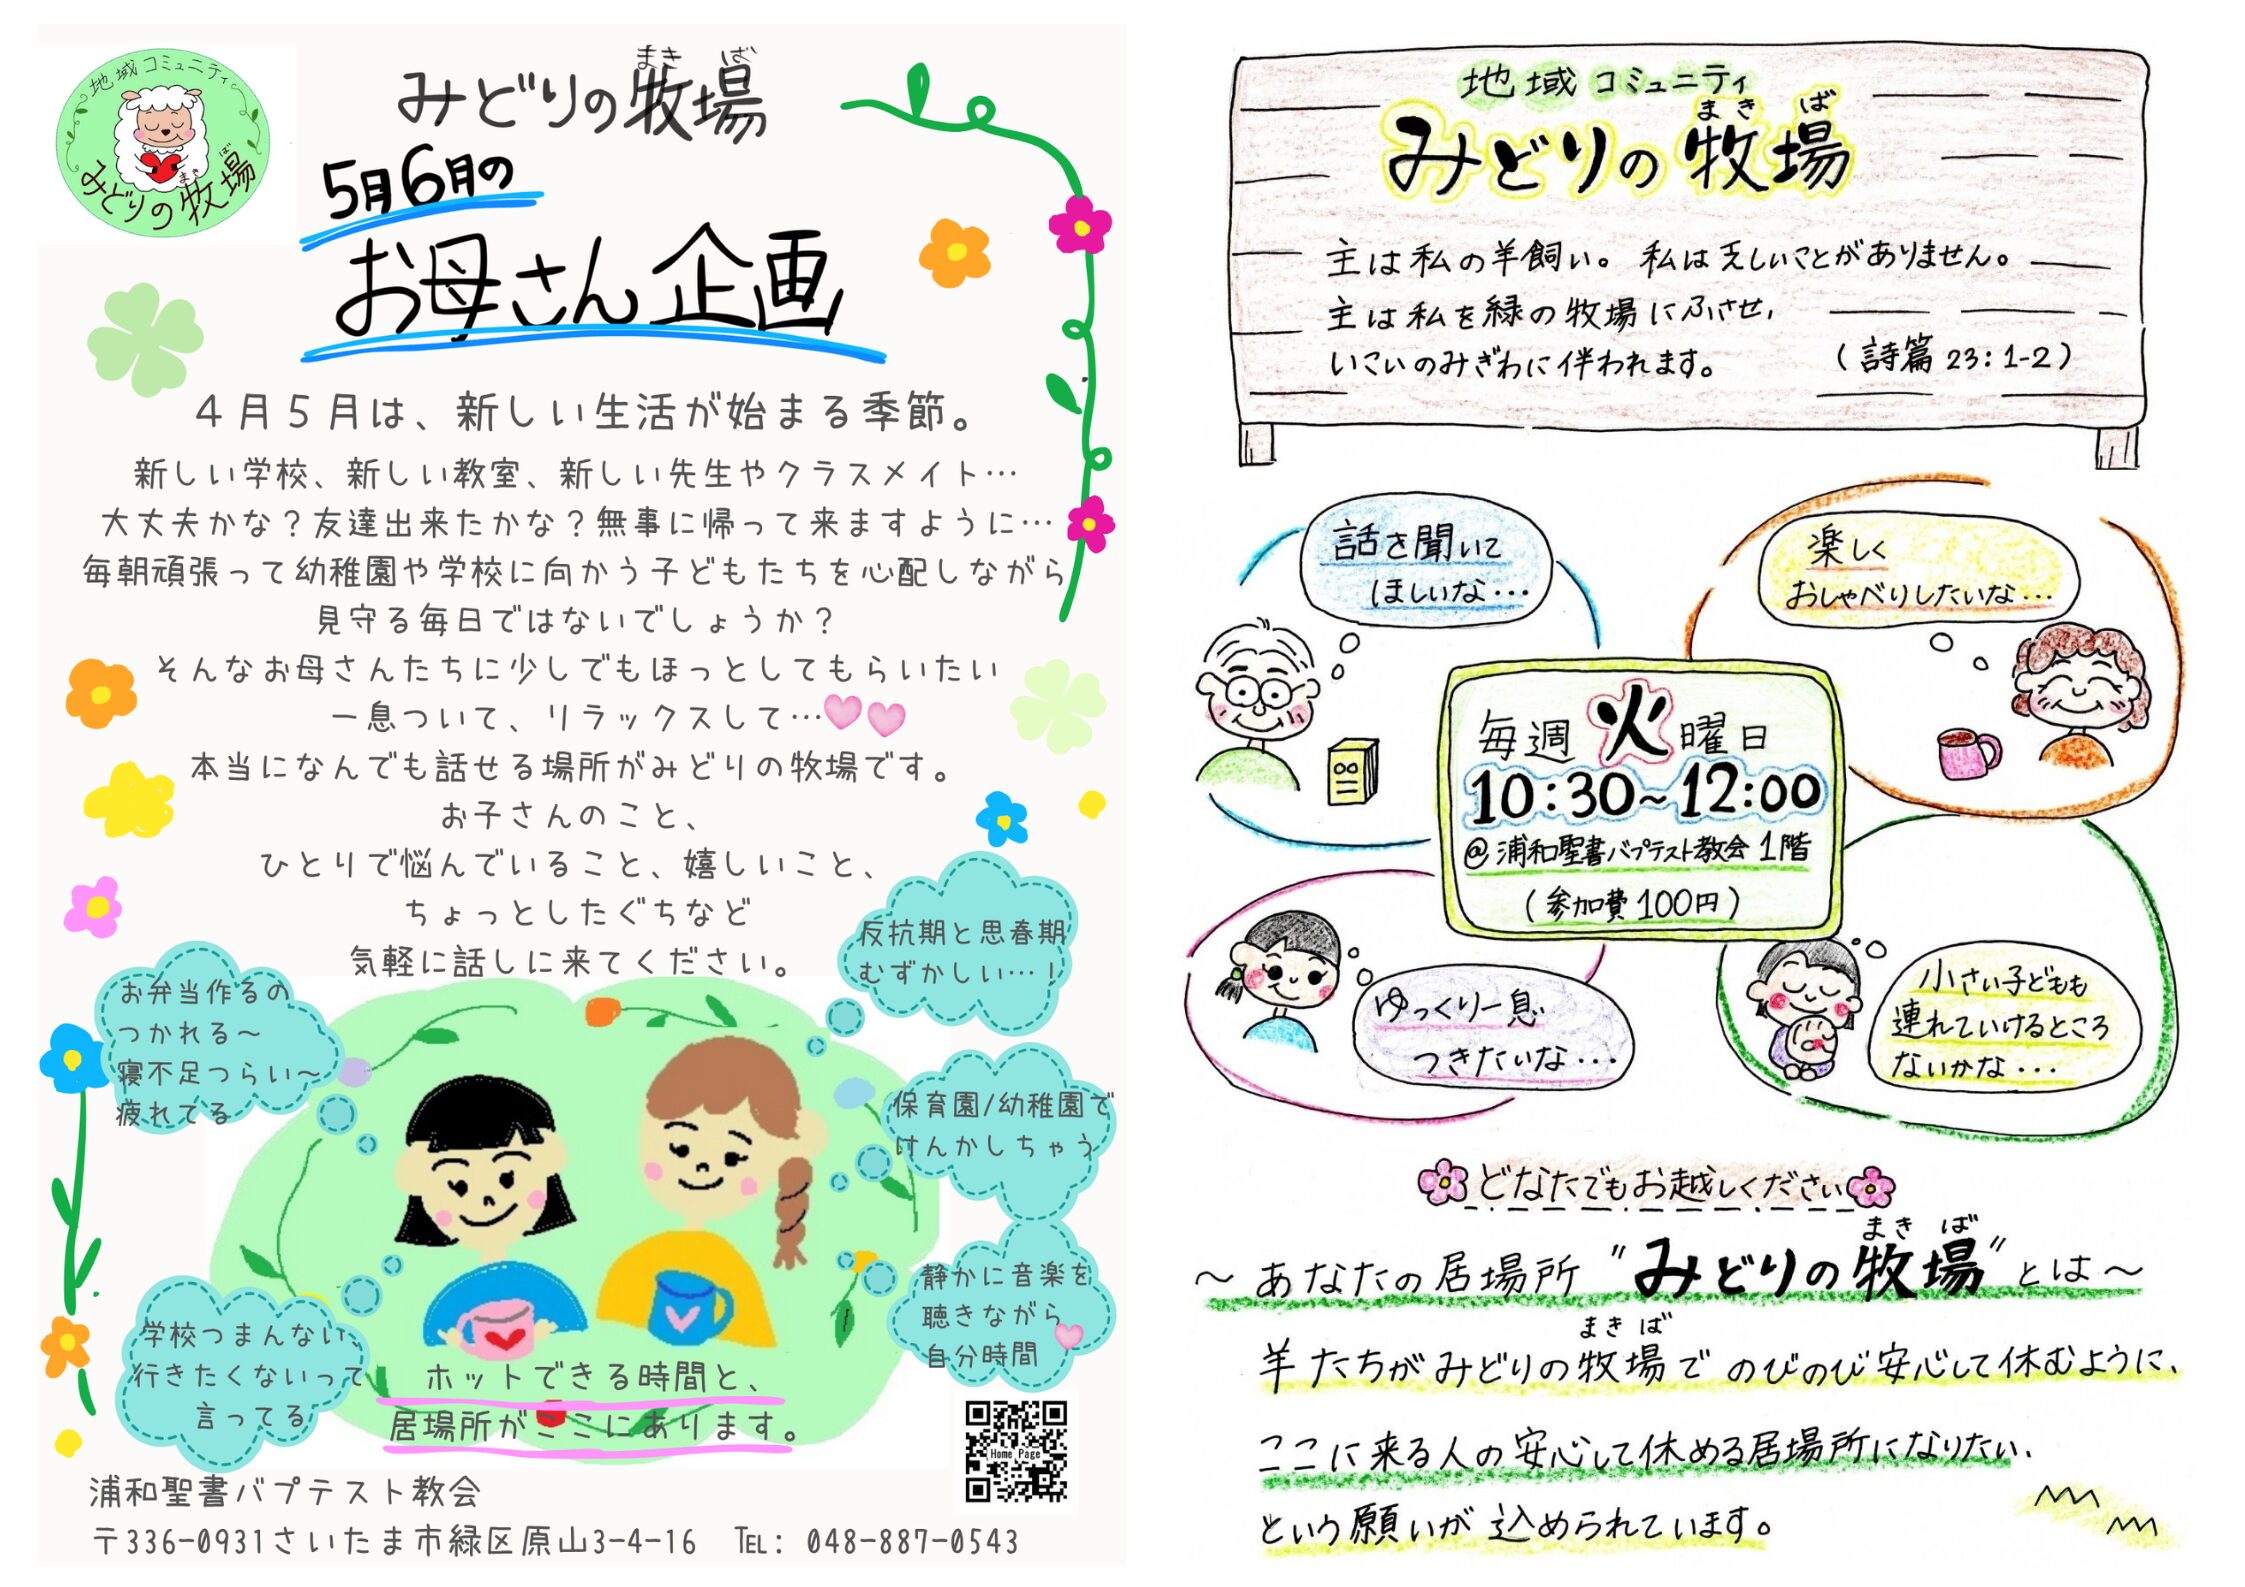 地域コミュニティ
みどりの牧場
まきば
まきば
みどりの牧場
5月6月の
お母さん企画
4月5月は、新しい生活が始まる季節。
新しい学校、新しい教室、新しい先生やクラスメイト…
大丈夫かな？友達出来たかな？無事に帰って来ますように…
毎朝頑張って幼稚園や学校に向かう子どもたちを心配しながら
見守る毎日ではないでしょうか？
そんなお母さんたちに少しでもほっとしてもらいたい
一息ついて、リラックスして…
本当になんでも話せる場所がみどりの牧場です。
お子さんのこと、
ひとりで悩んでいること、嬉しいこと、
ちょっとしたぐちなど
気軽に話しに来てください。
反抗期と思春期
むずかしい…！
お弁当作るの
つかれる～
寝不足つらい～
疲れてる
保育園/幼稚園で
けんかしちゃう
静かに音楽を
聴きながら
自分時間
学校つまんない、
行きたくないって
言ってる
ホットできる時間と、
居場所がここにあります。
Home Page
浦和聖書バプテスト教会
〒336-0931さいたま市緑区原山3-4-16 TEL: 048-887-0543
地域コミュニティ
まきば
みどりの牧場
主は私の羊飼い。私は乏しいことがありません。
主は私を緑の牧場にふさせ,
いこいのみぎわに伴われます。 (詩篇23:1-2)
話を聞いて
ほしいな…
楽しく
おしゃべりしたいな…
毎週火曜日
10:30~12:00
@浦和聖書バプテスト教会1階
(参加費100円)
ゆっくり一息
つきたいな…
小さい子どもも
連れていけるところ
ないかな…
どなたでもお越しください
まきば
～あなたの居場所"みどりの牧場"とは～
まきば
羊たちがみどりの牧場でのびのび安心して休むように、
ここに来る人の安心して休める居場所になりたい、
という願いが込められています。